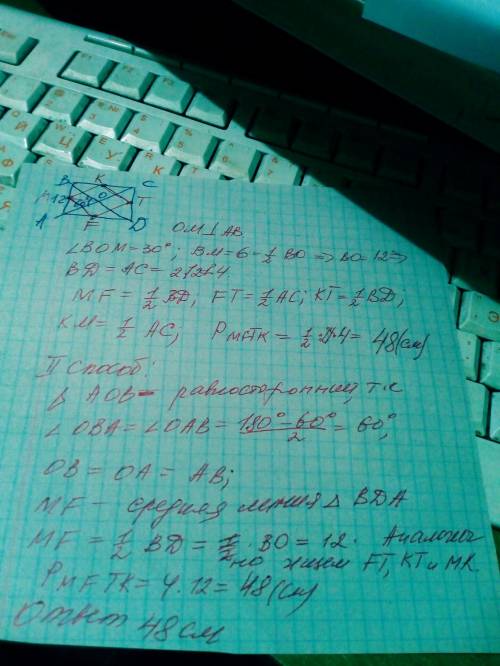 B K C
M 12 60° O T
A F D
OM⊥AB
∠BOM=30°; BM=6=½BO ⇒ BO=12 ⇒
BD=AC=24
MF=½BD; FT=½AC; KT=½BD;
KM=½AC; P MFTK = ½·24·4=48(см)
II способ:
Δ AOB - равносторонний, т.к
∠OBA=∠OAB= (180°-60°)/2 =60°,
OB=OA=AB;
MF - средняя линия Δ BDA
MF=½BD= BO=12. Аналогич
но ищем FT, KT и MK.
P MFTK=4·12=48(см)
Ответ 48см